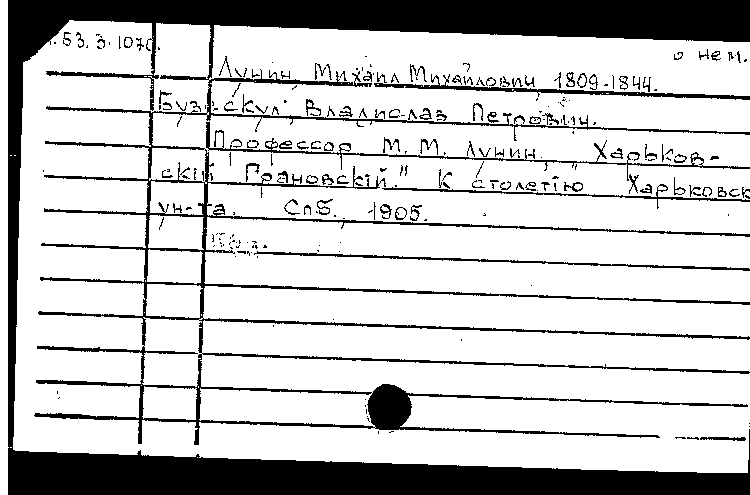 .53.3.107б.
о нем.
Лунин, Михаил Михайлович, 1809-1844.
Бузескул, Владислав Петрович.
Профессор М. М. Лунин, „Харьков-
скій Грановскій." К столетію Харьковск
ун-та. Спб., 1905.